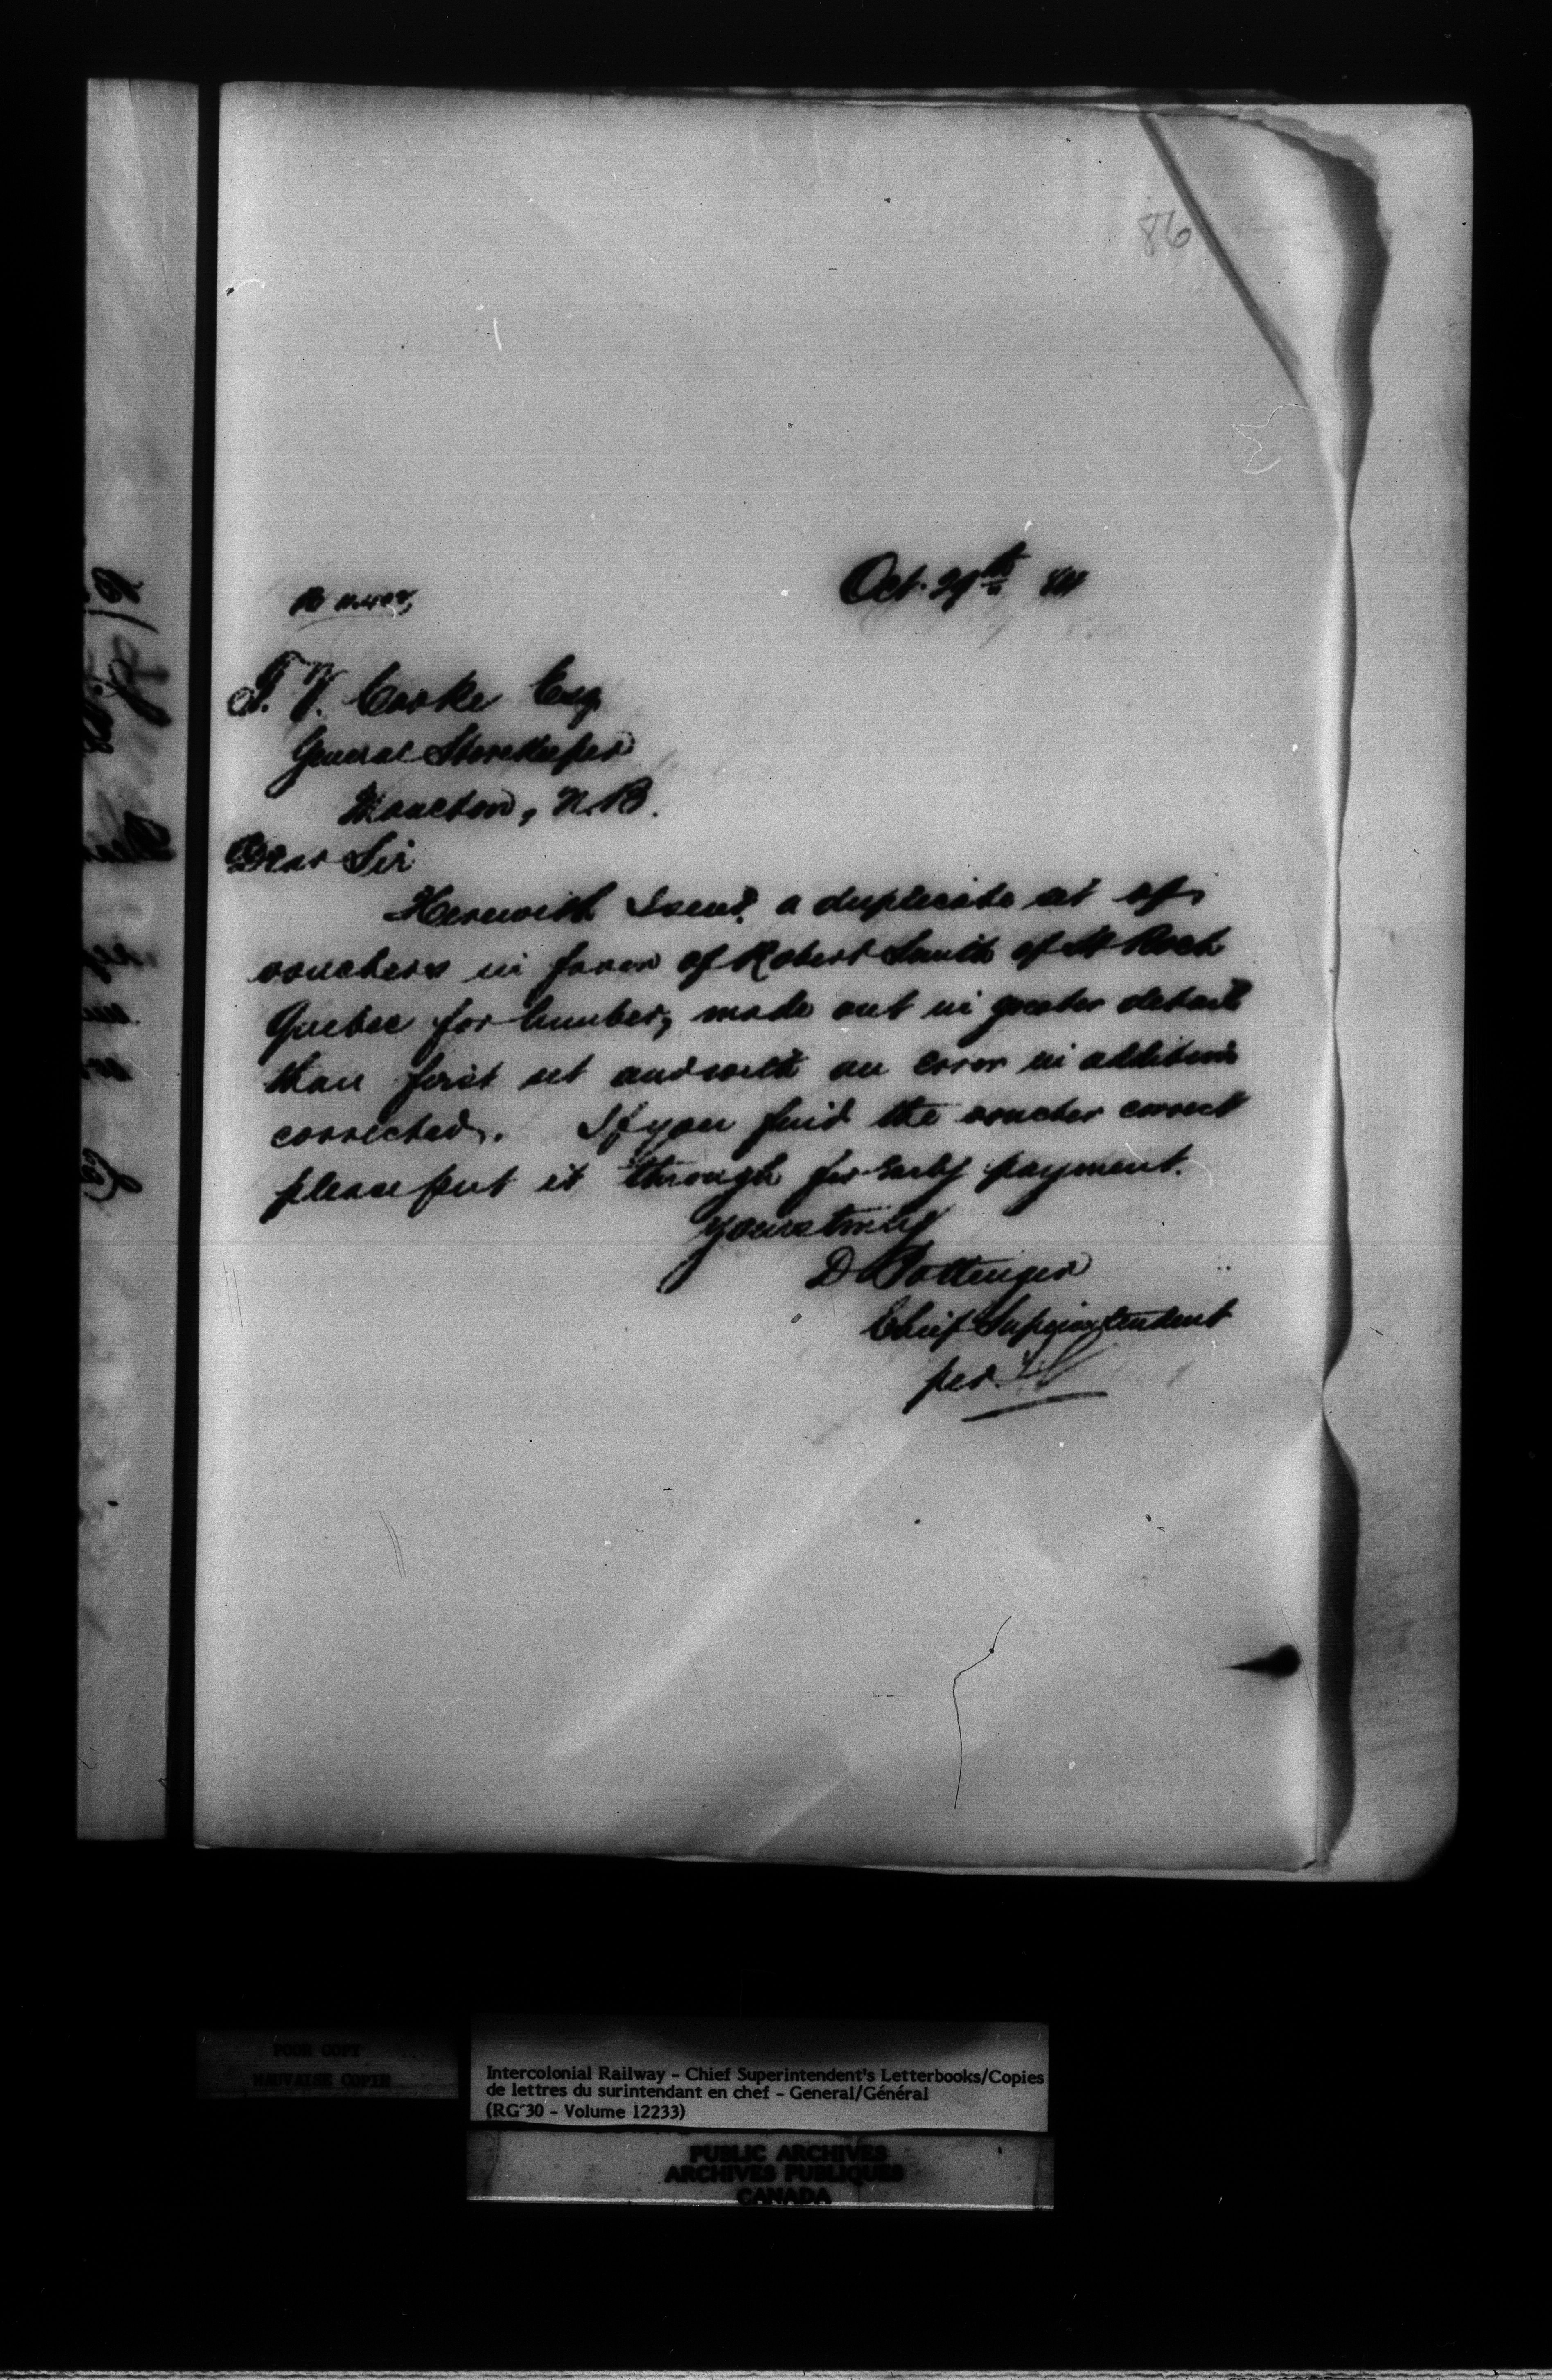 86
Oct. 29th
T. V. Cooke Esq
General Storekeeper
Moncton, N.B.
Dear Sir
Herewith I send a duplicate set of
vouchers in favor of Robert Smith of St Roch
Quebec for lumber, made out in greater detail
than first set and with an error in addition
corrected. If you find the voucher correct
please put it through for early payment.
Yours truly
D Pottinger
Chief Superintendent
per
POOR COPY
MAUVAISE COPIE
Intercolonial Railway - Chief Superintendent's Letterbooks/Copies
de lettres du surintendant en chef - General/Général
(RG 30 - Volume 12233)
PUBLIC ARCHIVES
ARCHIVES PUBLIQUES
CANADA